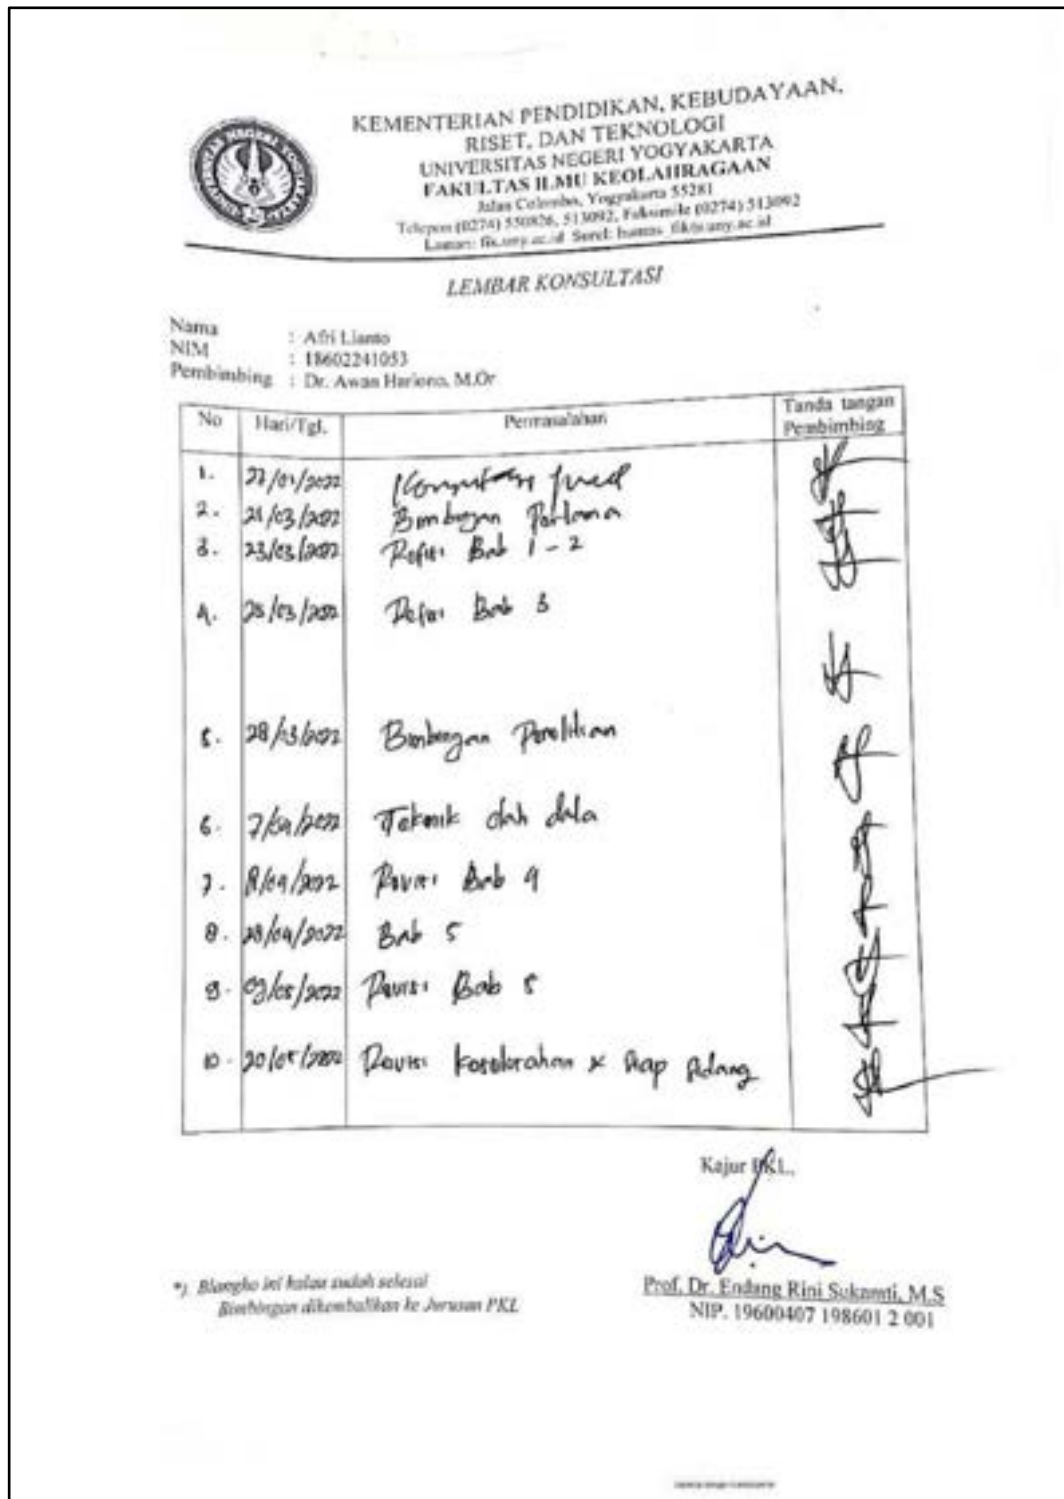 KEMENTERIAN PENDIDIKAN, KEBUDAYAAN,
RISET, DAN TEKNOLOGI
UNIVERSITAS NEGERI YOGYAKARTA
FAKULTAS ILMU KEOLAHRAGAAN
Jalan Colombo, Yogyakarta 55281
Telepon (0274) 550826, 513092, Faksimile (0274) 513092
Laman: fik.uny.ac.id Surel: humas_fik@uny.ac.id
LEMBAR KONSULTASI
Nama : Afri Lianto
NIM : 18602241053
Pembimbing : Dr. Awan Hariono, M.Or
No Hari/Tgl. Permasalahan Tanda tangan Pembimbing
1. /01/2022
2. 21/03/2022 Bimbingan Pertama
3. 23/03/2022 Refisi Bab 1 - 2
4. 25/03/2022 Refisi Bab 3
5. 28/03/2022 Bimbingan Penelitian
6. 7/04/2022 Teknik olah data
7. /04/2022 Revisi Bab 4
8. 28/04/2022 Bab 5
9. 09/05/2022 Revisi Bab 5
10. 20/05/2022 Revisi Keseluruhan & Siap Sidang
Kajur PKL.,
*). Blangko ini kalau sudah selesai
Bimbingan dikembalikan ke Jurusan PKL
Prof. Dr. Endang Rini Sukamti, M.S
NIP. 19600407 198601 2 001